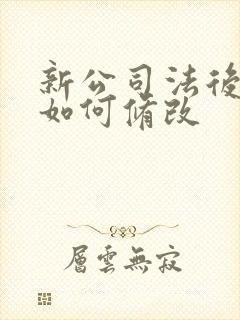 新公司法後
如何脩改
層雲無寂